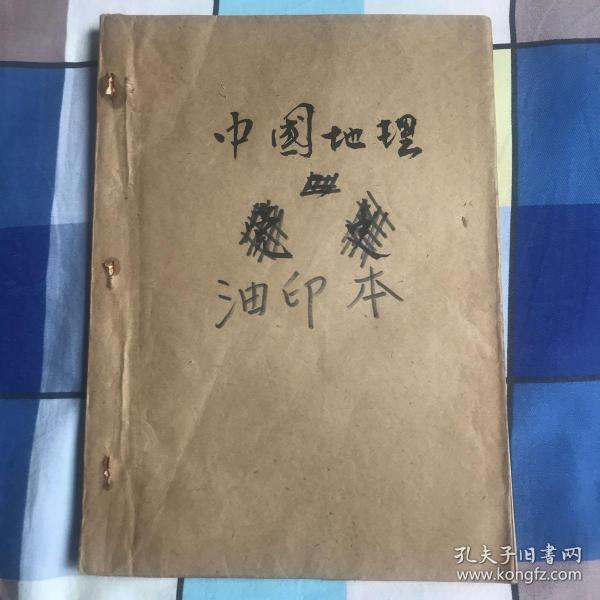 中國地理
油印本
孔夫子旧書网
www.kongfz.com